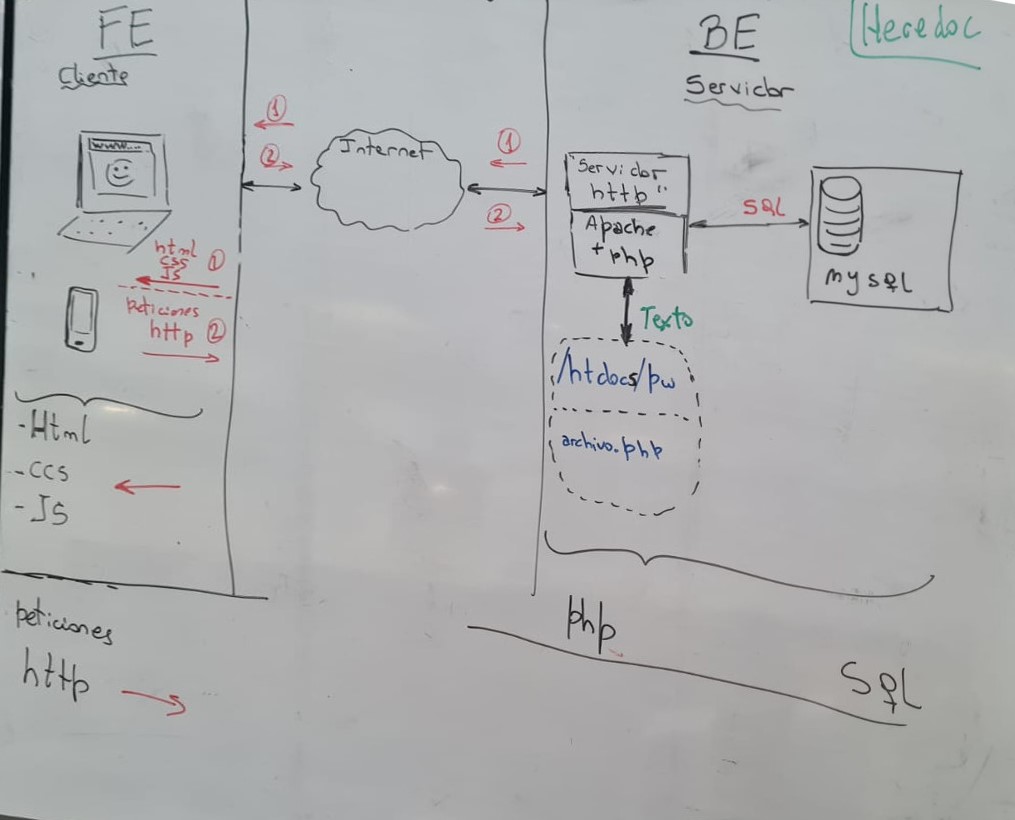 FE
Cliente
www....
html
css
JS
1
peticiones
http 2
-Html
-CCS
-JS
peticiones
http
1
2
Internet
1
2
BE
Servidor
Heredoc
"Servidor
http"
Apache
+ php
SQL
mysql
Texto
/htdocs/pw
archivo.php
php
SQL